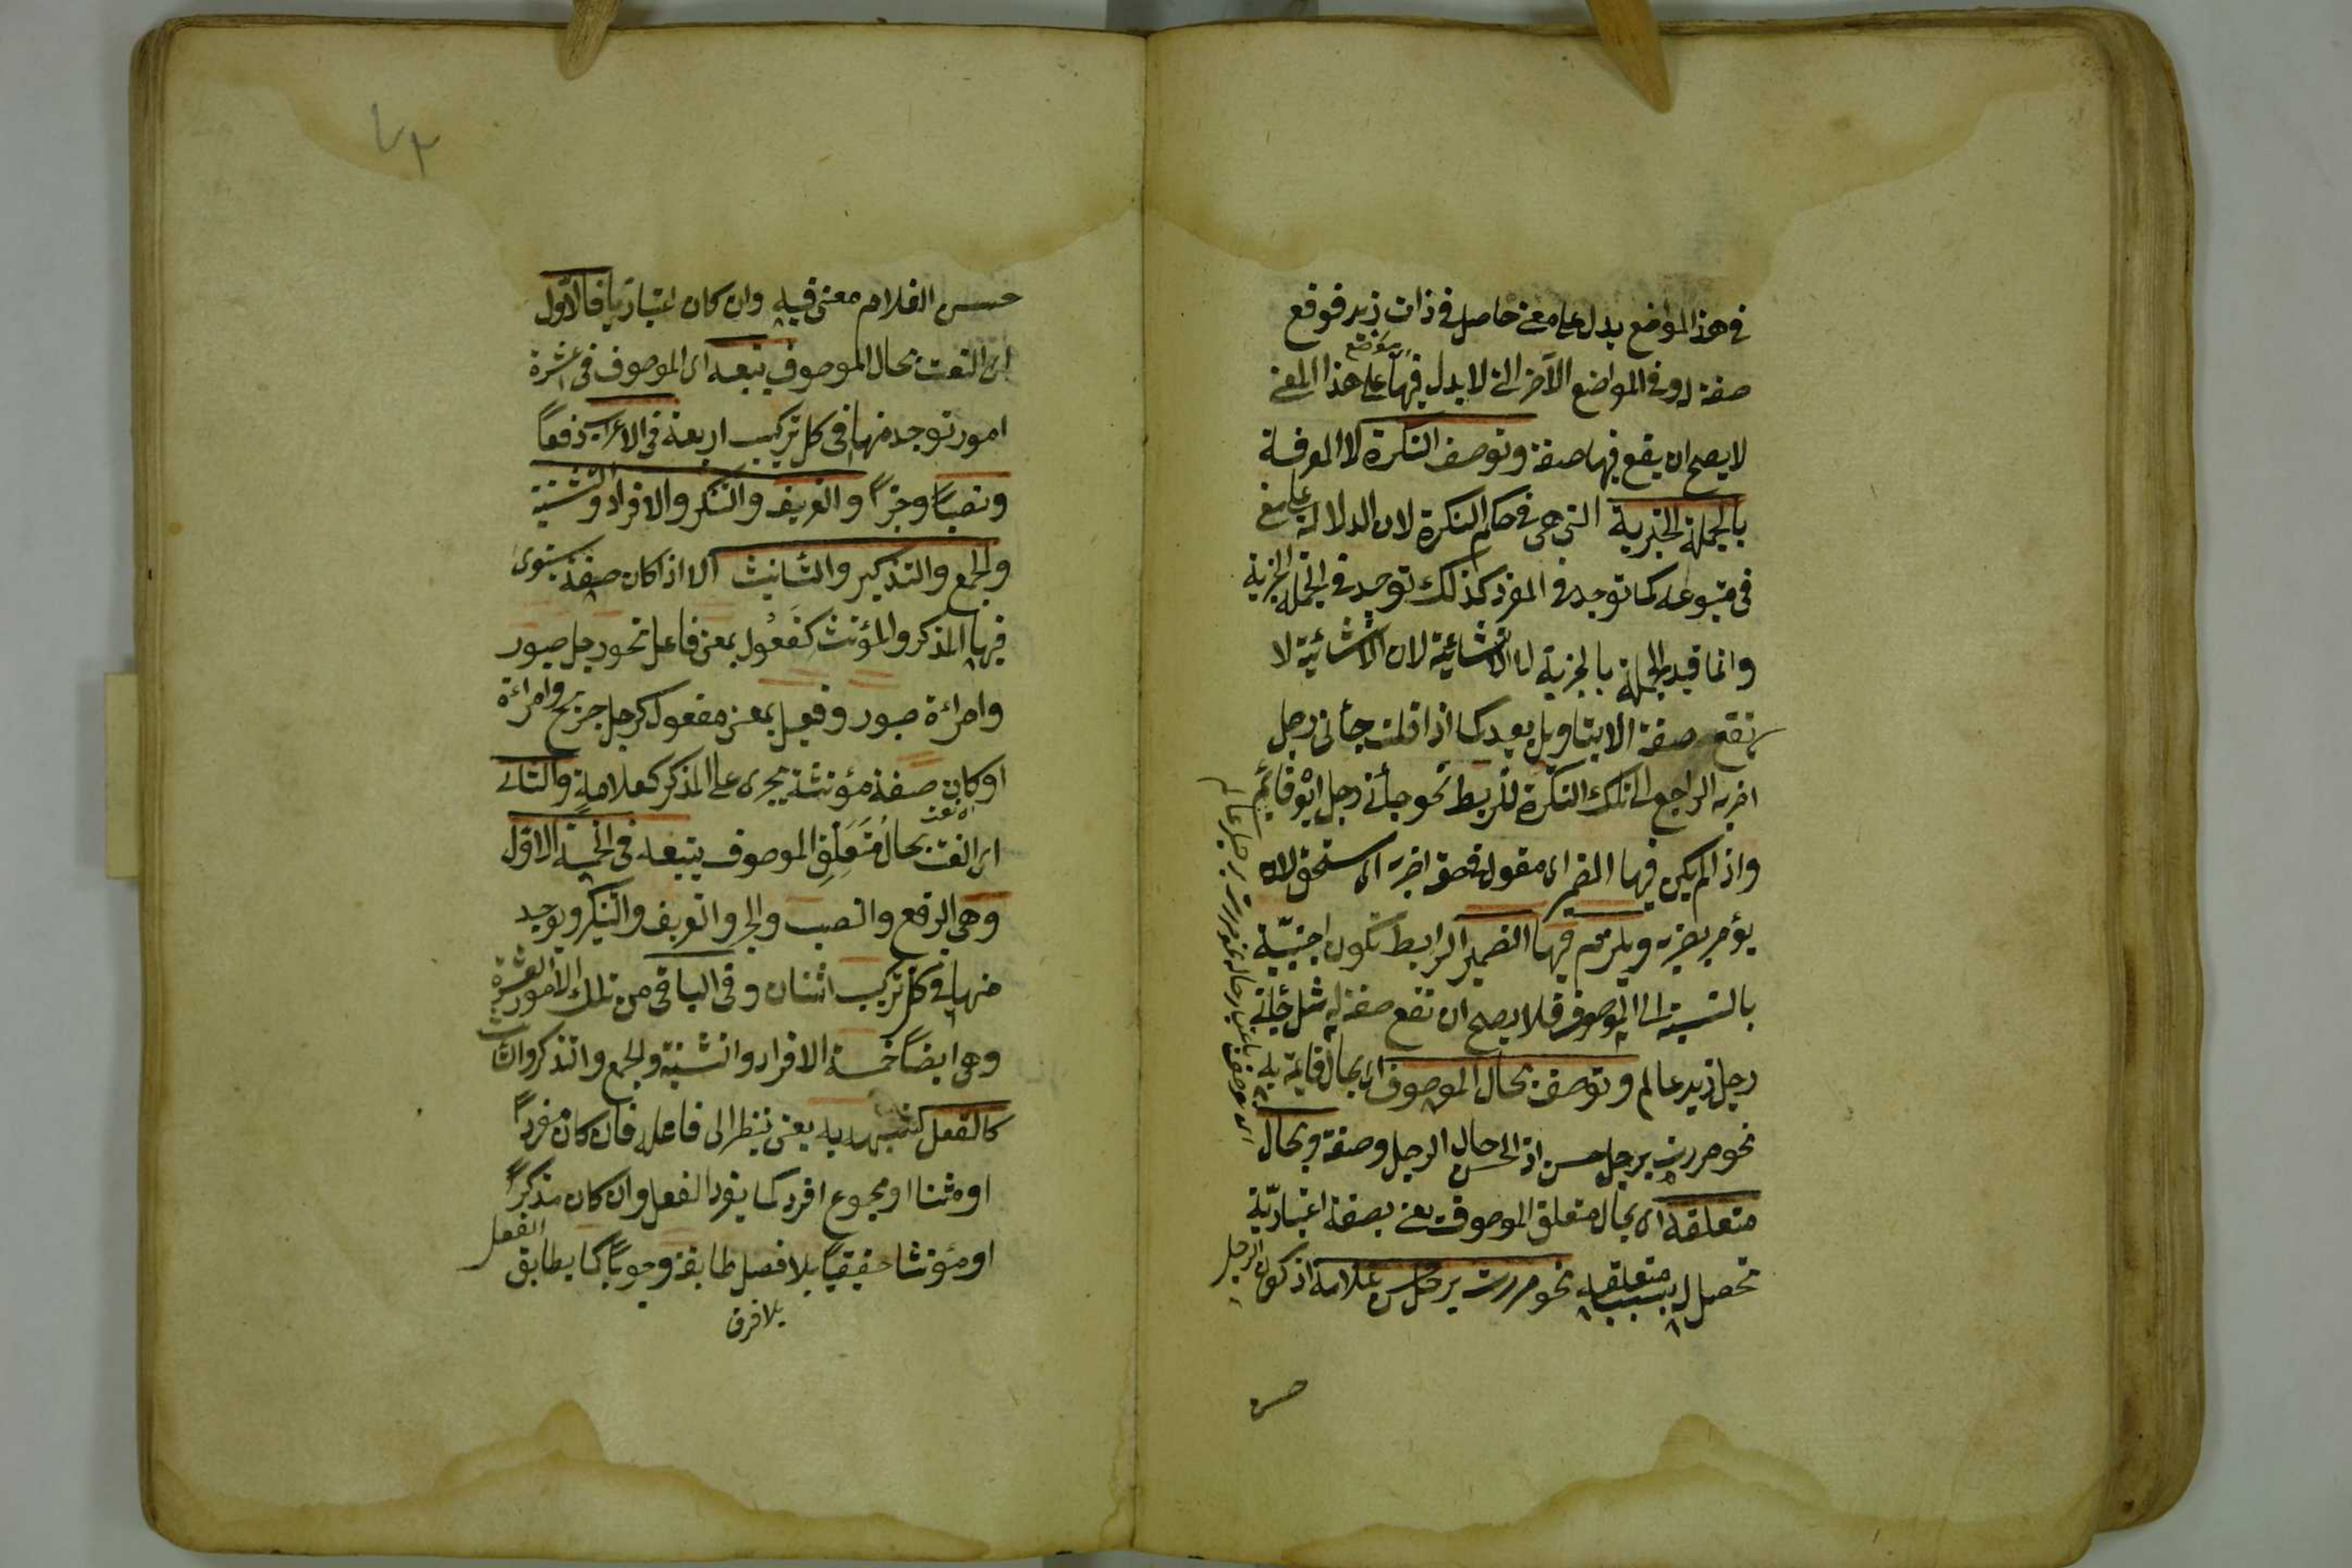 في هذا المواضع يدل على معنى حاصل في ذات زيد فوقع
موضع
صفة له وفي المواضع الآخر التي لا يدل فيها على هذا المعنى
لا يصح ان يقع فيها صفة وتوصف النكرة لا المعرفة
بالجملة الخبرية التي هي في حكم النكرة لان الدلالة على معنى
في متبوعه كما توجد في المفرد كذلك توجد في الجملة الخبرية
وانما قيد الجملة بالخبرية لان الانشائية لا
تقع صفة الا بتاويل بعيد كما اذا قلت جأنى رجل
اضربه الراجع الى تلك النكرة للربط نحو جأنى رجل ابوه قائم
واذا لم يكن فيها الضمير اى مقول في حقه اضربه اى مستحق لان
يؤمر بضربه ويلزم فيها الضمير الرابط تكون اجنبيّة
بالنسبة الى الموصوف فلا يصح ان تقع صفة له مثل جأنى
رجل زيد عالم وتوصف بحال الموصوف اى بحال قائمة به
نحو مررت برجل حسن اذ الحسن حال الرجل وصفة وبحال
متعلقه اى بحال متعلق الموصوف يعنى بصفة اعتباريّة
تحصل له بسبب متعلقه نحو مررت برجل حسن غلامه اذ كون الرجل
حسن
حسن الغلام معنى فيه وان كان اعتباريا فالاوّل
اى النعت بحال الموصوف يتبعه اى الموصوف في عشرة
امور توجد منها في كل تركيب اربعة في الاعراب رفعاً
ونصباً وجرّاً والتعريف والتنكير والافراد والتثنية
والجمع والتذكير والتأنيث الا اذا كان صفة يستوى
فيها المذكر والمؤنث كفَعُول بمعنى فاعل نحو رجل صبور
وامراءة صبور وفعيل بمعنى مفعول كرجل جريح وامراءة
او كان صفة مؤنثة يجرى على المذكر كعلامة والثانى
اى النعت بحال مُتَعَلِّقِ الموصوف يتبعه في الخمسة الاوَل
وهي الرفع والنصب والجر والتعريف والتنكير ويوجد
منها في كل تركيب اثنان وفي الباقى من تلك الامور العشرة
وهي ايضاً خمسة الافراد والتثنية والجمع والتذكير والتأنيث
كالفعل لشبهه به يعنى ينظر الى فاعله فان كان مفرداً
او مثنا او مجموع افرد كما يفرد الفعل وان كان مذكراً
او مؤنثا حقيقياً بلا فصل طابقه وجوباً كما يطابق الفعل
بلا فرق